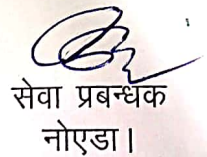 सेवा प्रबन्धक
नोएडा।